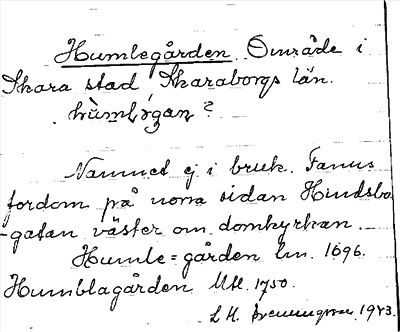 Humlegården. Område i
Skara stad, Skaraborgs län.
hùmlı̨́gan?
Namnet ej i bruk. Fanns
fordom på norra sidan Hindsbo
-gatan väster om domkyrkan.
Humle=gården lm. 1696.
Humblagården UH. 1750.
1943.